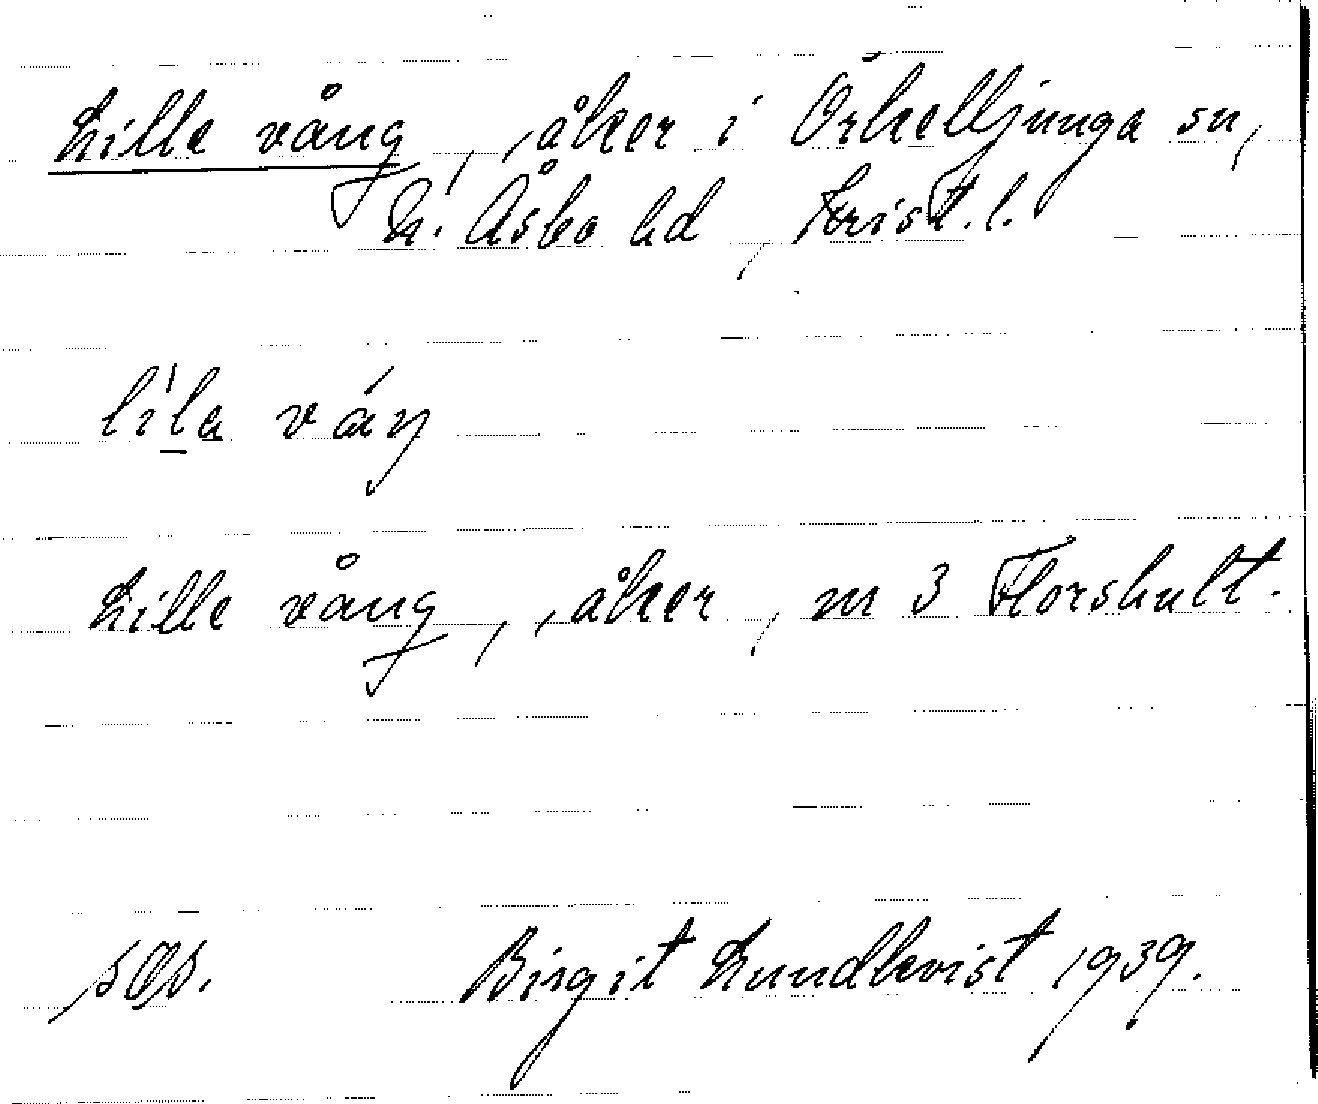 Lille vång, åker i Örkelljunga sn,
N. Åsbo hd, Krist. l.
lila váŋ
Lille vång, åker, m 3 Florshult.
Birgit Lundkvist 1939.